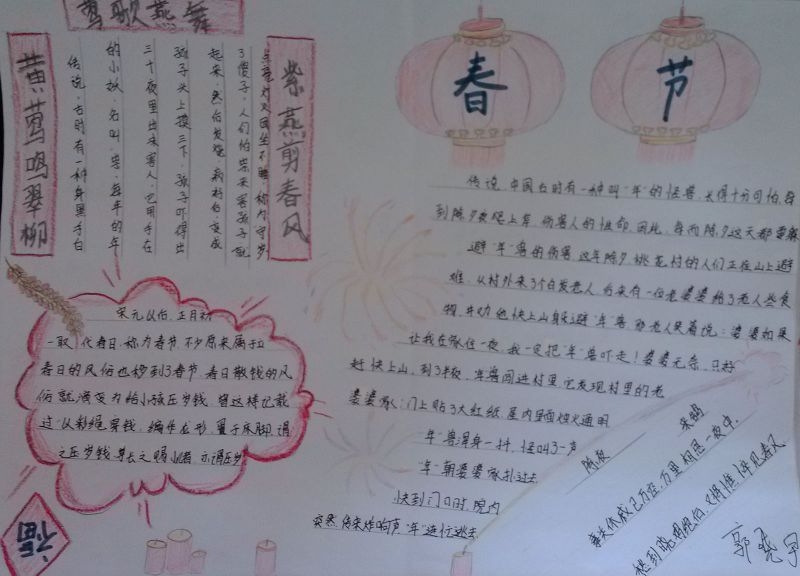 莺歌燕舞
黄莺鸣翠柳
紫燕剪春风
传说，古时有一种身黑手白
的小妖，名叫"祟"，每年的年
三十夜里出来害人，它用手在
孩子头上摸三下，孩子吓得
起来，然后发烧
了傻子，人们怕祟来害孩子就
点亮灯火团坐不睡，称为守岁
宋元以后，正月初
一取代春日，称为春节，不少原来属于立
春日的风俗也移到了春节，春日散钱的风
俗就演变为给小孩压岁钱
过"以彩绳穿钱，编作龙形，置于床脚，谓
之压岁钱，尊长之赐小儿者，亦谓压岁
福
春
节
传说，中国古时有一种叫"年"的怪兽，长得十分可怕，每
到除夕夜爬上岸，伤害人的性命，因此，每而除夕这天都要躲
避"年"兽的伤害，这年除夕，桃花村的人们正在山上避
难，从村外来了个白发老人，后来有一位老婆婆给了老人些食
物，并劝他快上山躲避"年"兽，那老人笑着说：婆婆如果
让我在家住一夜，我一定把"年"兽吓走！婆婆无奈，只好
赶快上山，到了半夜，年兽闯进村里，它发现村里的老
婆婆家：门上贴了大红纸，屋内里面烛火通明
"年"兽浑身一抖，怪叫了一声
"年"朝婆婆家扑过去
快到门口时，院内
突然传来炸响声，"年"连忙逃去
除夜
事关休戚已万经，万里相思一夜中
愁到晓鸡